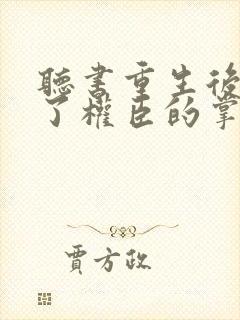 聽書重生後
了權臣的掌
賈方政